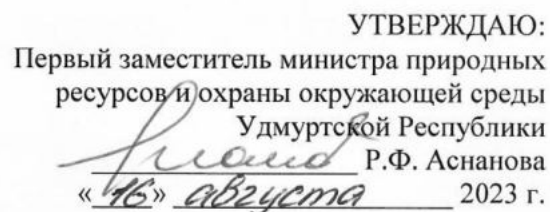 УТВЕРЖДАЮ:
Первый заместитель министра природных
ресурсов и охраны окружающей среды
Удмуртской Республики
Р.Ф. Аснанова
«16» августа 2023 г.